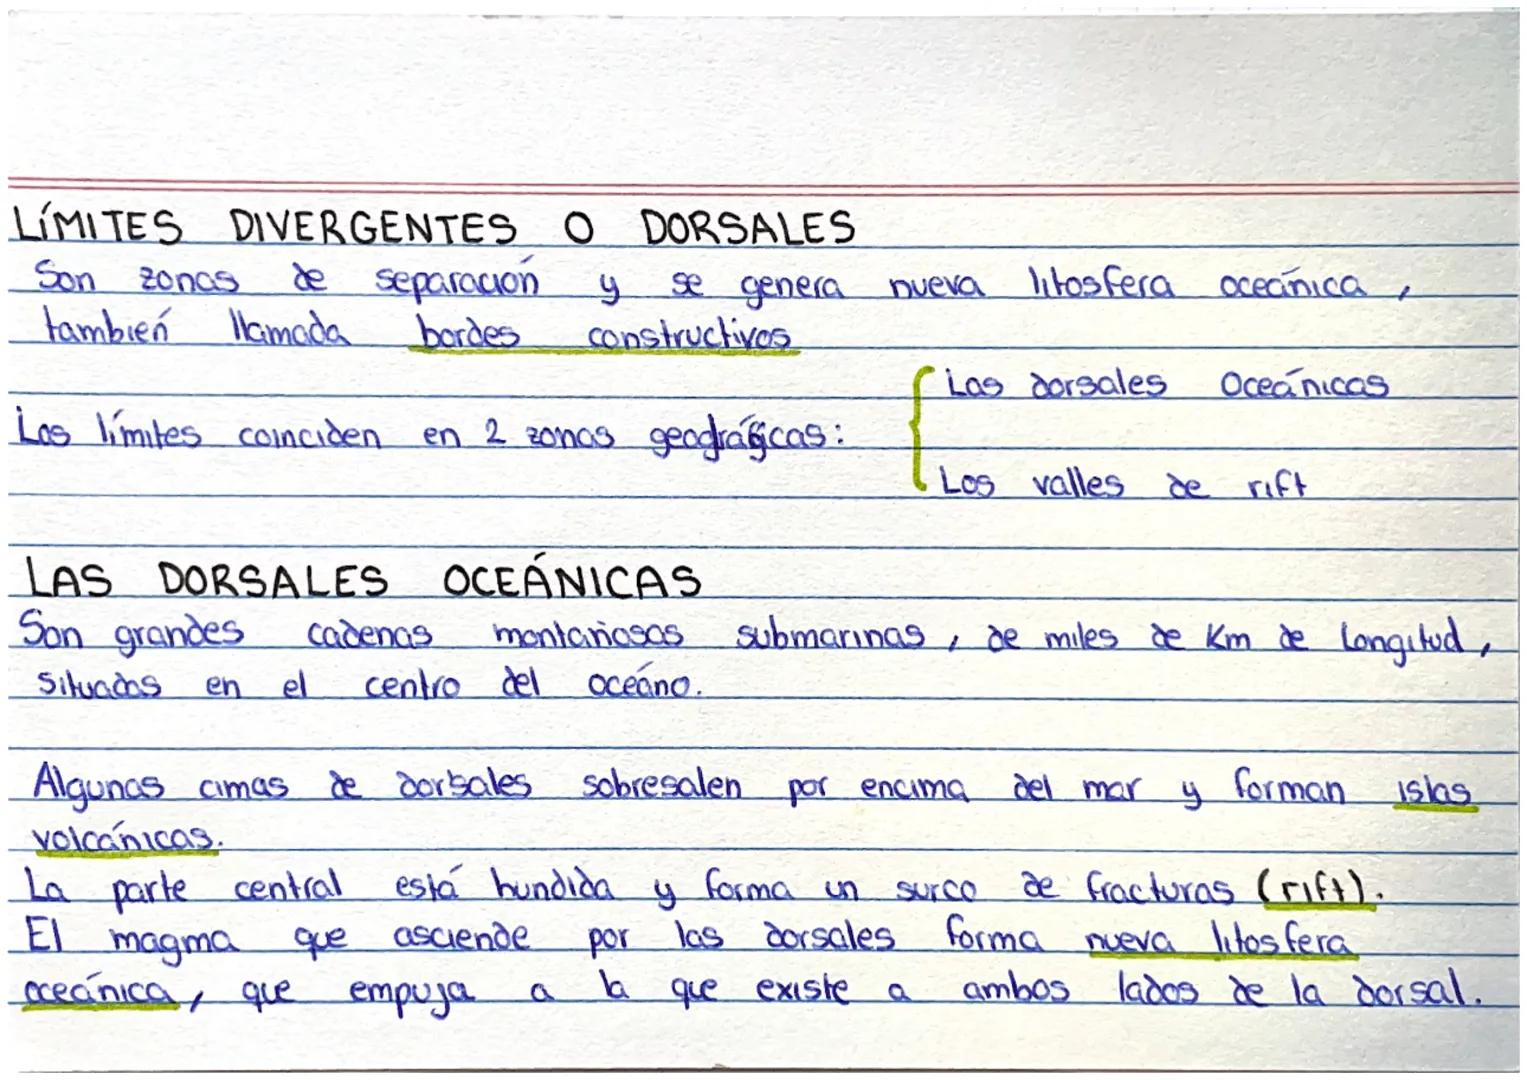 LÍMITES DIVERGENTES O DORSALES
Son zonas de separación y se genera nueva litosfera oceánica,
también llamada bordes constructivos
Las dorsales Oceánicas
Los límites coinciden en 2 zonas geográficas:
Los valles de rift
LAS DORSALES OCEÁNICAS
Son grandes cadenas montañosas submarinas, de miles de Km de longitud,
situadas en el centro del océano.
Algunas cimas de dorsales sobresalen por encima del mar y forman islas
volcánicas.
La parte central está hundida y forma un surco de fracturas (rift).
El magma que asciende por las dorsales forma nueva litosfera
oceánica, que empuja a la que existe a ambos lados de la dorsal.